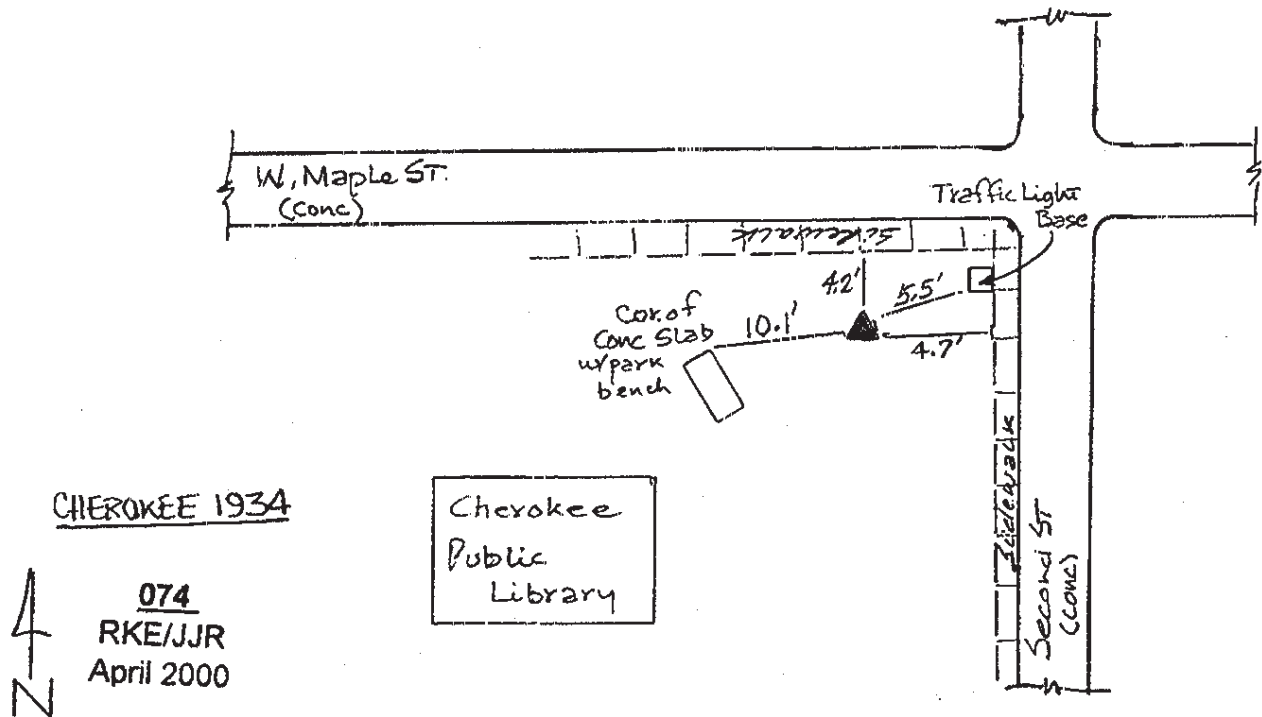 W. Maple ST.
(Conc)
Traffic Light
Base
Sidewalk
4.2'
5.5'
Cor. of
Conc Slab
w/park
bench
10.1'
4.7'
Sidewalk
Second ST
(Conc)
CHEROKEE 1934
Cherokee
Public
Library
074
RKE/JJR
April 2000
N